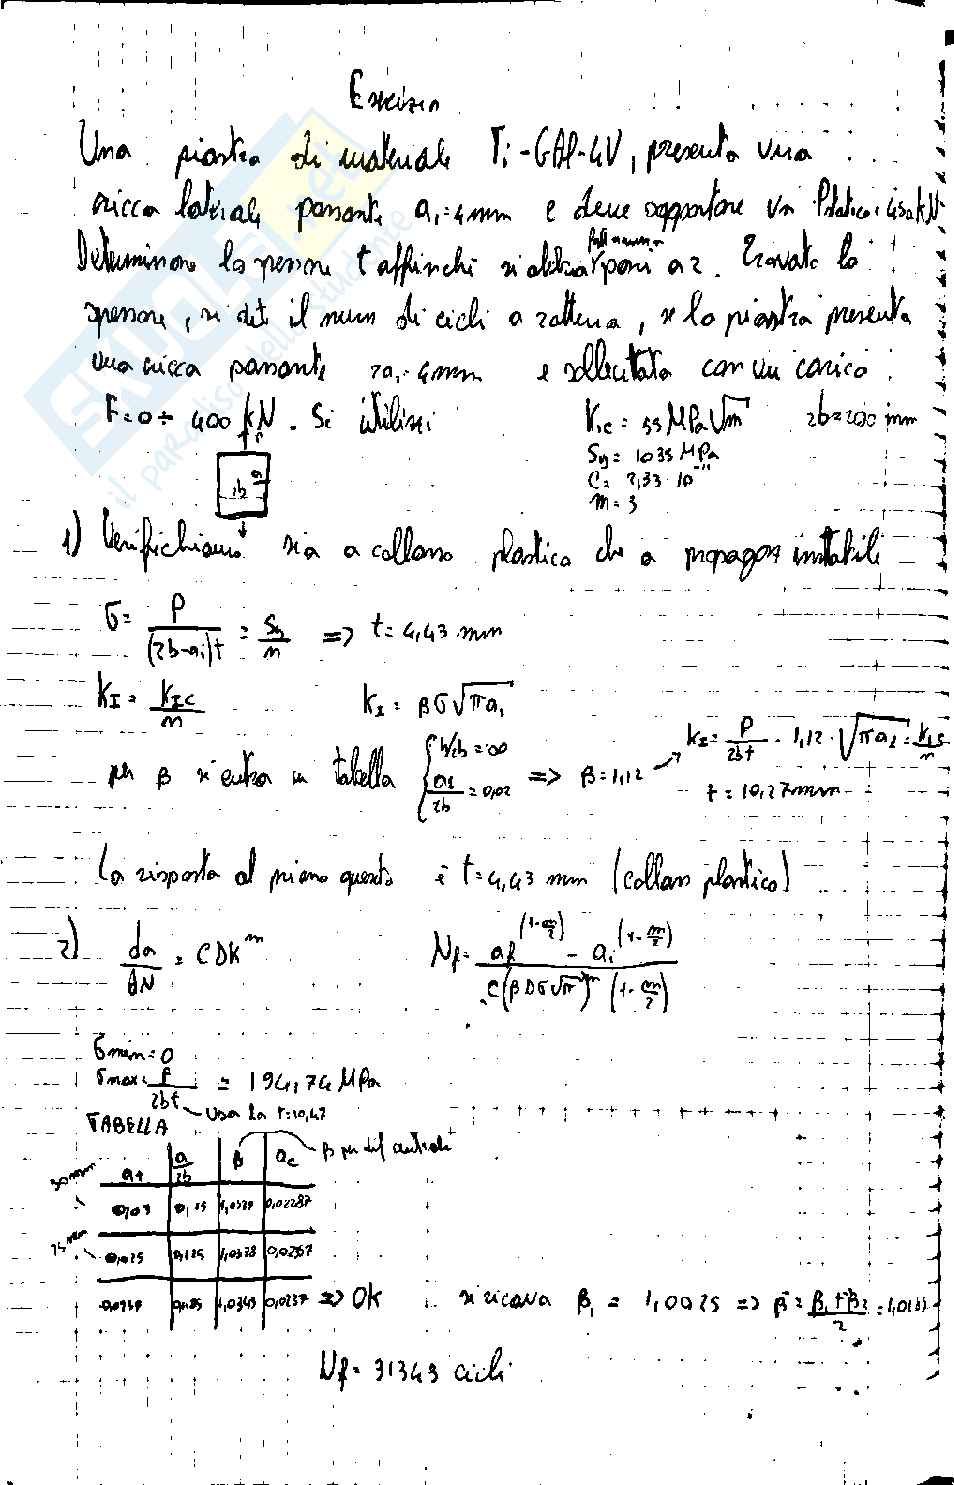 Esercizio
Una piastra di materiale Ti-6Al-4V, presenta una
cricca laterale passante a₁=4mm e deve sopportare un Pstatico: 450 kN.
Determinare lo spessore t affinchè si abbia pari a 2. Trovato lo
spessore, si det il num di cicli a rottura, se la piastra presenta
una cricca passante 2a₁=4mm e sollecitata con un carico
F=0÷400 kN. Si utilizzi
K_IC = 55 MPa√m 2b=200 mm
Sy = 1035 MPa
C = 2,33 · 10⁻¹¹
m = 3
P
a
2b
1) Verifichiamo sia a collasso plastico che a propagaz instabile
σ = P/((2b-a₁)t) = Sy/n => t = 4,43 mm
K_I = K_IC/n K_I = βσ√(πa₁)
per β si entra in tabella { h/2b = ∞ a₁/2b = 0,02 => β = 1,12
K_I = P/(2bt) · 1,12 · √(πa₁) = K_IC/n
t = 10,27mm
La risposta al primo quesito è t = 4,43 mm (collasso plastico)
2) da/dN = CDK^m N_f = (a_f^(1-m/2) - a_i^(1-m/2)) / (C(βDσ√π)^m (1-m/2))
σmin=0
σmax = P/(2bt) = 194,74 MPa
Usa la t=10,27
TABELLA
β per dif centrale
a_f a/2b β a_c
30mm 0,03 0,15 1,0529 0,02287
25 mm 0,025 0,125 1,0378 0,0237
0,0239 1,0343 0,0237 => OK si ricava β₁ = 1,0025 => β = (β₁+β₂)/2
N_f = 31343 cicli